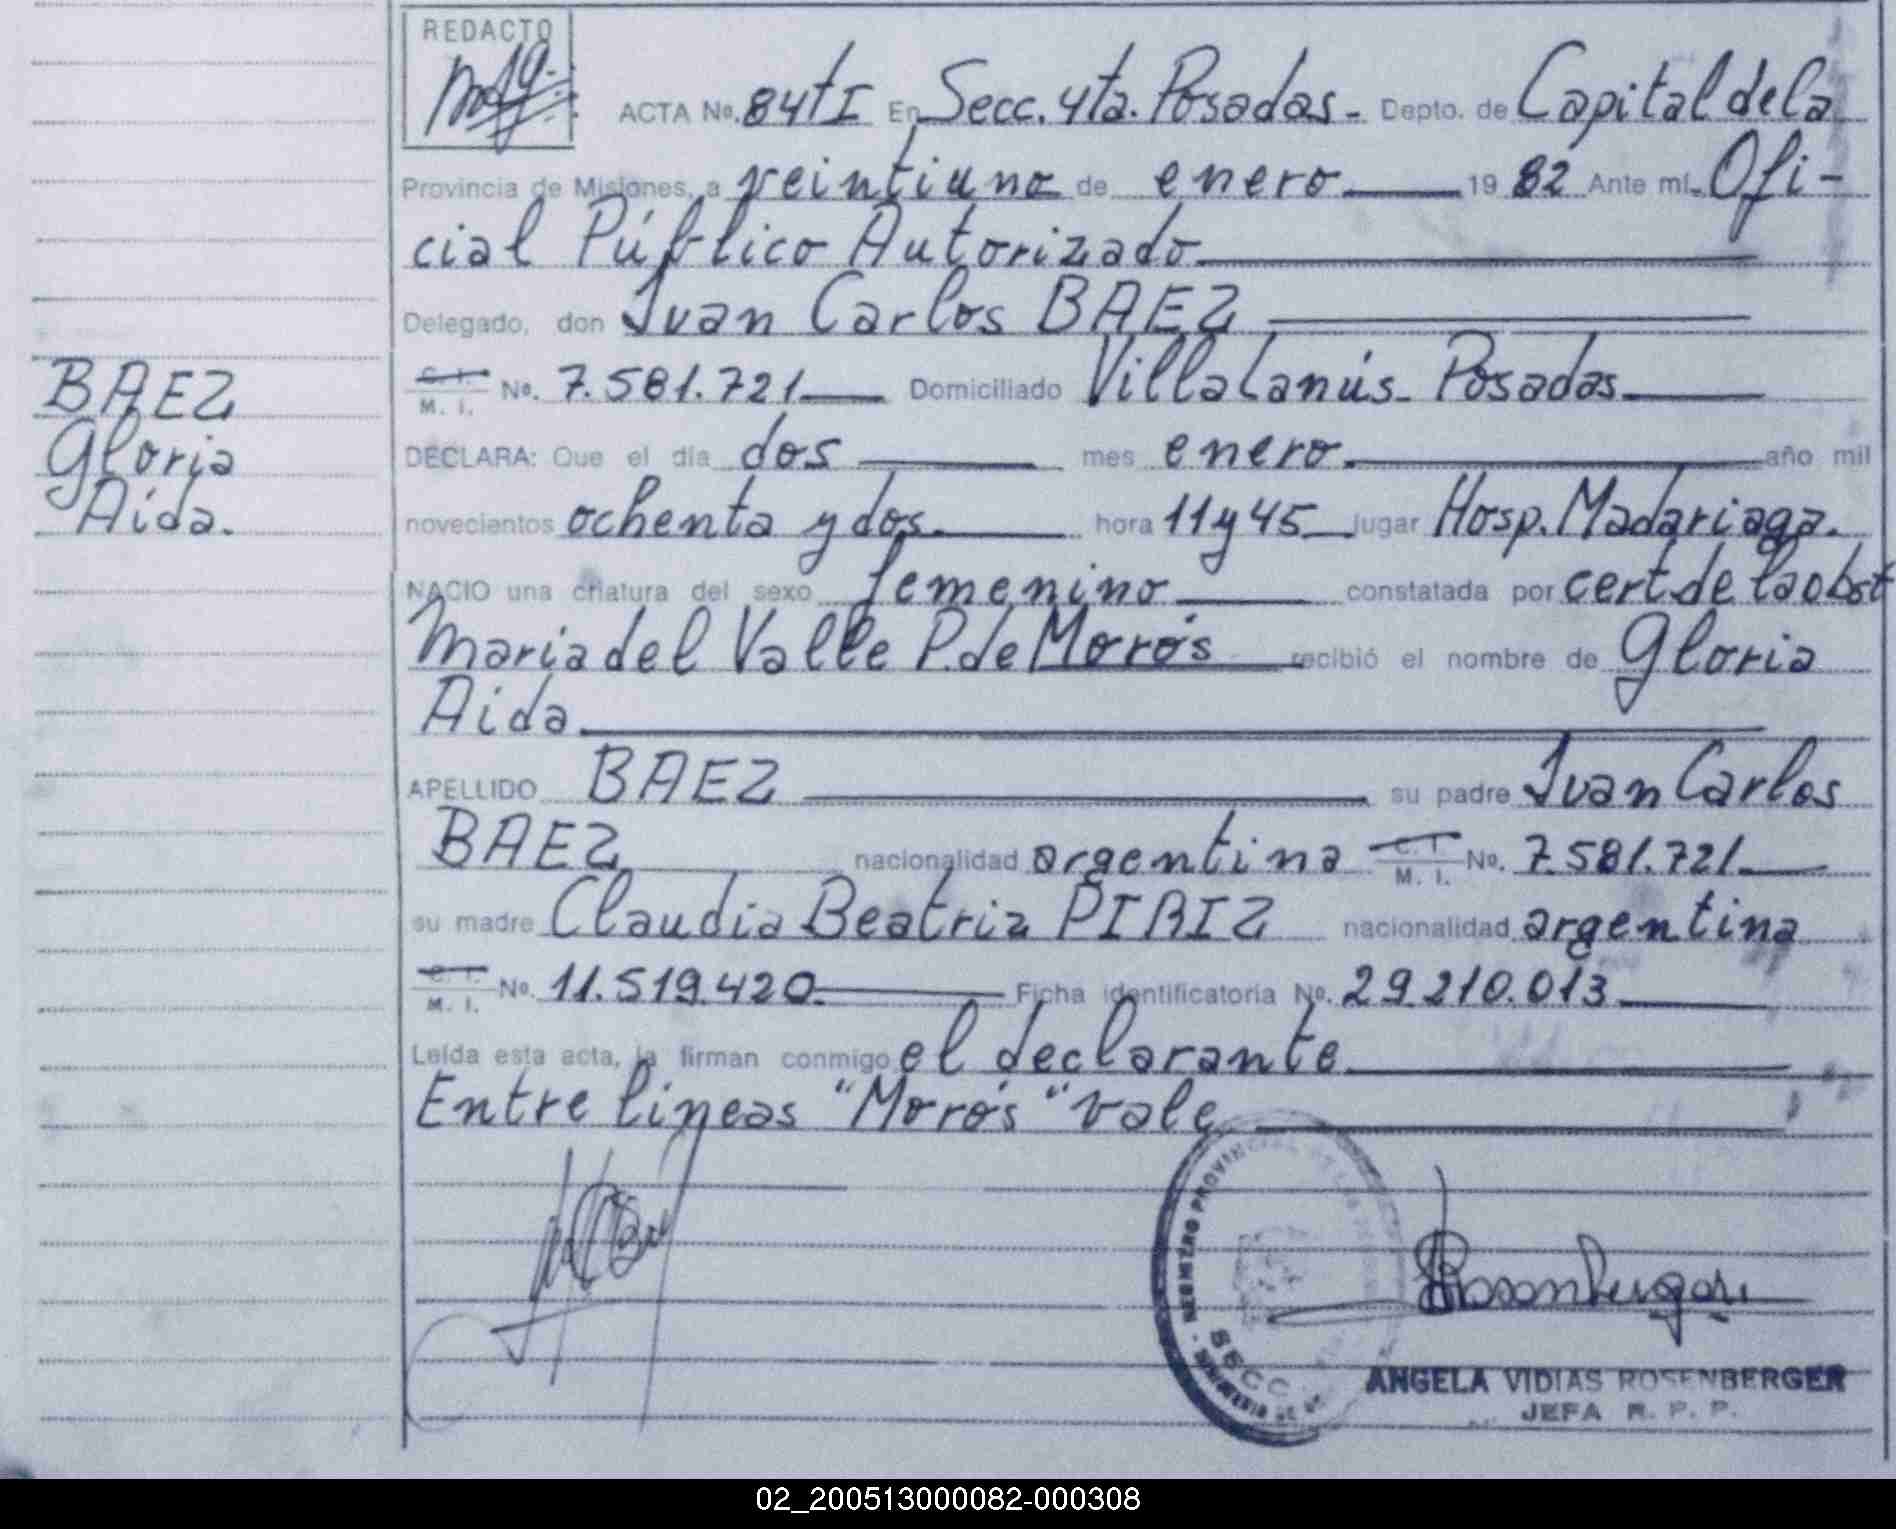 REDACTO
ACTA No. 84 tI En Secc. 4ta. Posadas.- Depto. de Capital de la
Provincia de Misiones, a veintiuno de enero 19 82 Ante mí, Ofi-
cial Público Autorizado
Delegado, don Juan Carlos BAEZ
C. I. M. I. No. 7.581.721 Domiciliado Villa Lanús. Posadas.
DECLARA: Que el día dos mes enero. año mil
novecientos ochenta y dos. hora 11 y 45 lugar Hosp. Madariaga.
NACIO una criatura del sexo femenino constatada por cert. de la obst
Maria del Valle P. de Morós recibió el nombre de Gloria
Aida.
APELLIDO BAEZ su padre Juan Carlos
BAEZ nacionalidad argentina C. I. M. I. No. 7.581.721
su madre Claudia Beatriz PIRIZ nacionalidad argentina
C. I. M. I. No. 11.519.420 Ficha identificatoria No. 29.210.013
Leída esta acta, la firman conmigo el declarante.
Entre lineas "Morós" vale
BAEZ
Gloria
Aida.
REGISTRO PROVINCIAL DE LAS
SECC
ANGELA VIDIAS ROSENBERGER
JEFA R. P. P.
02_200513000082-000308